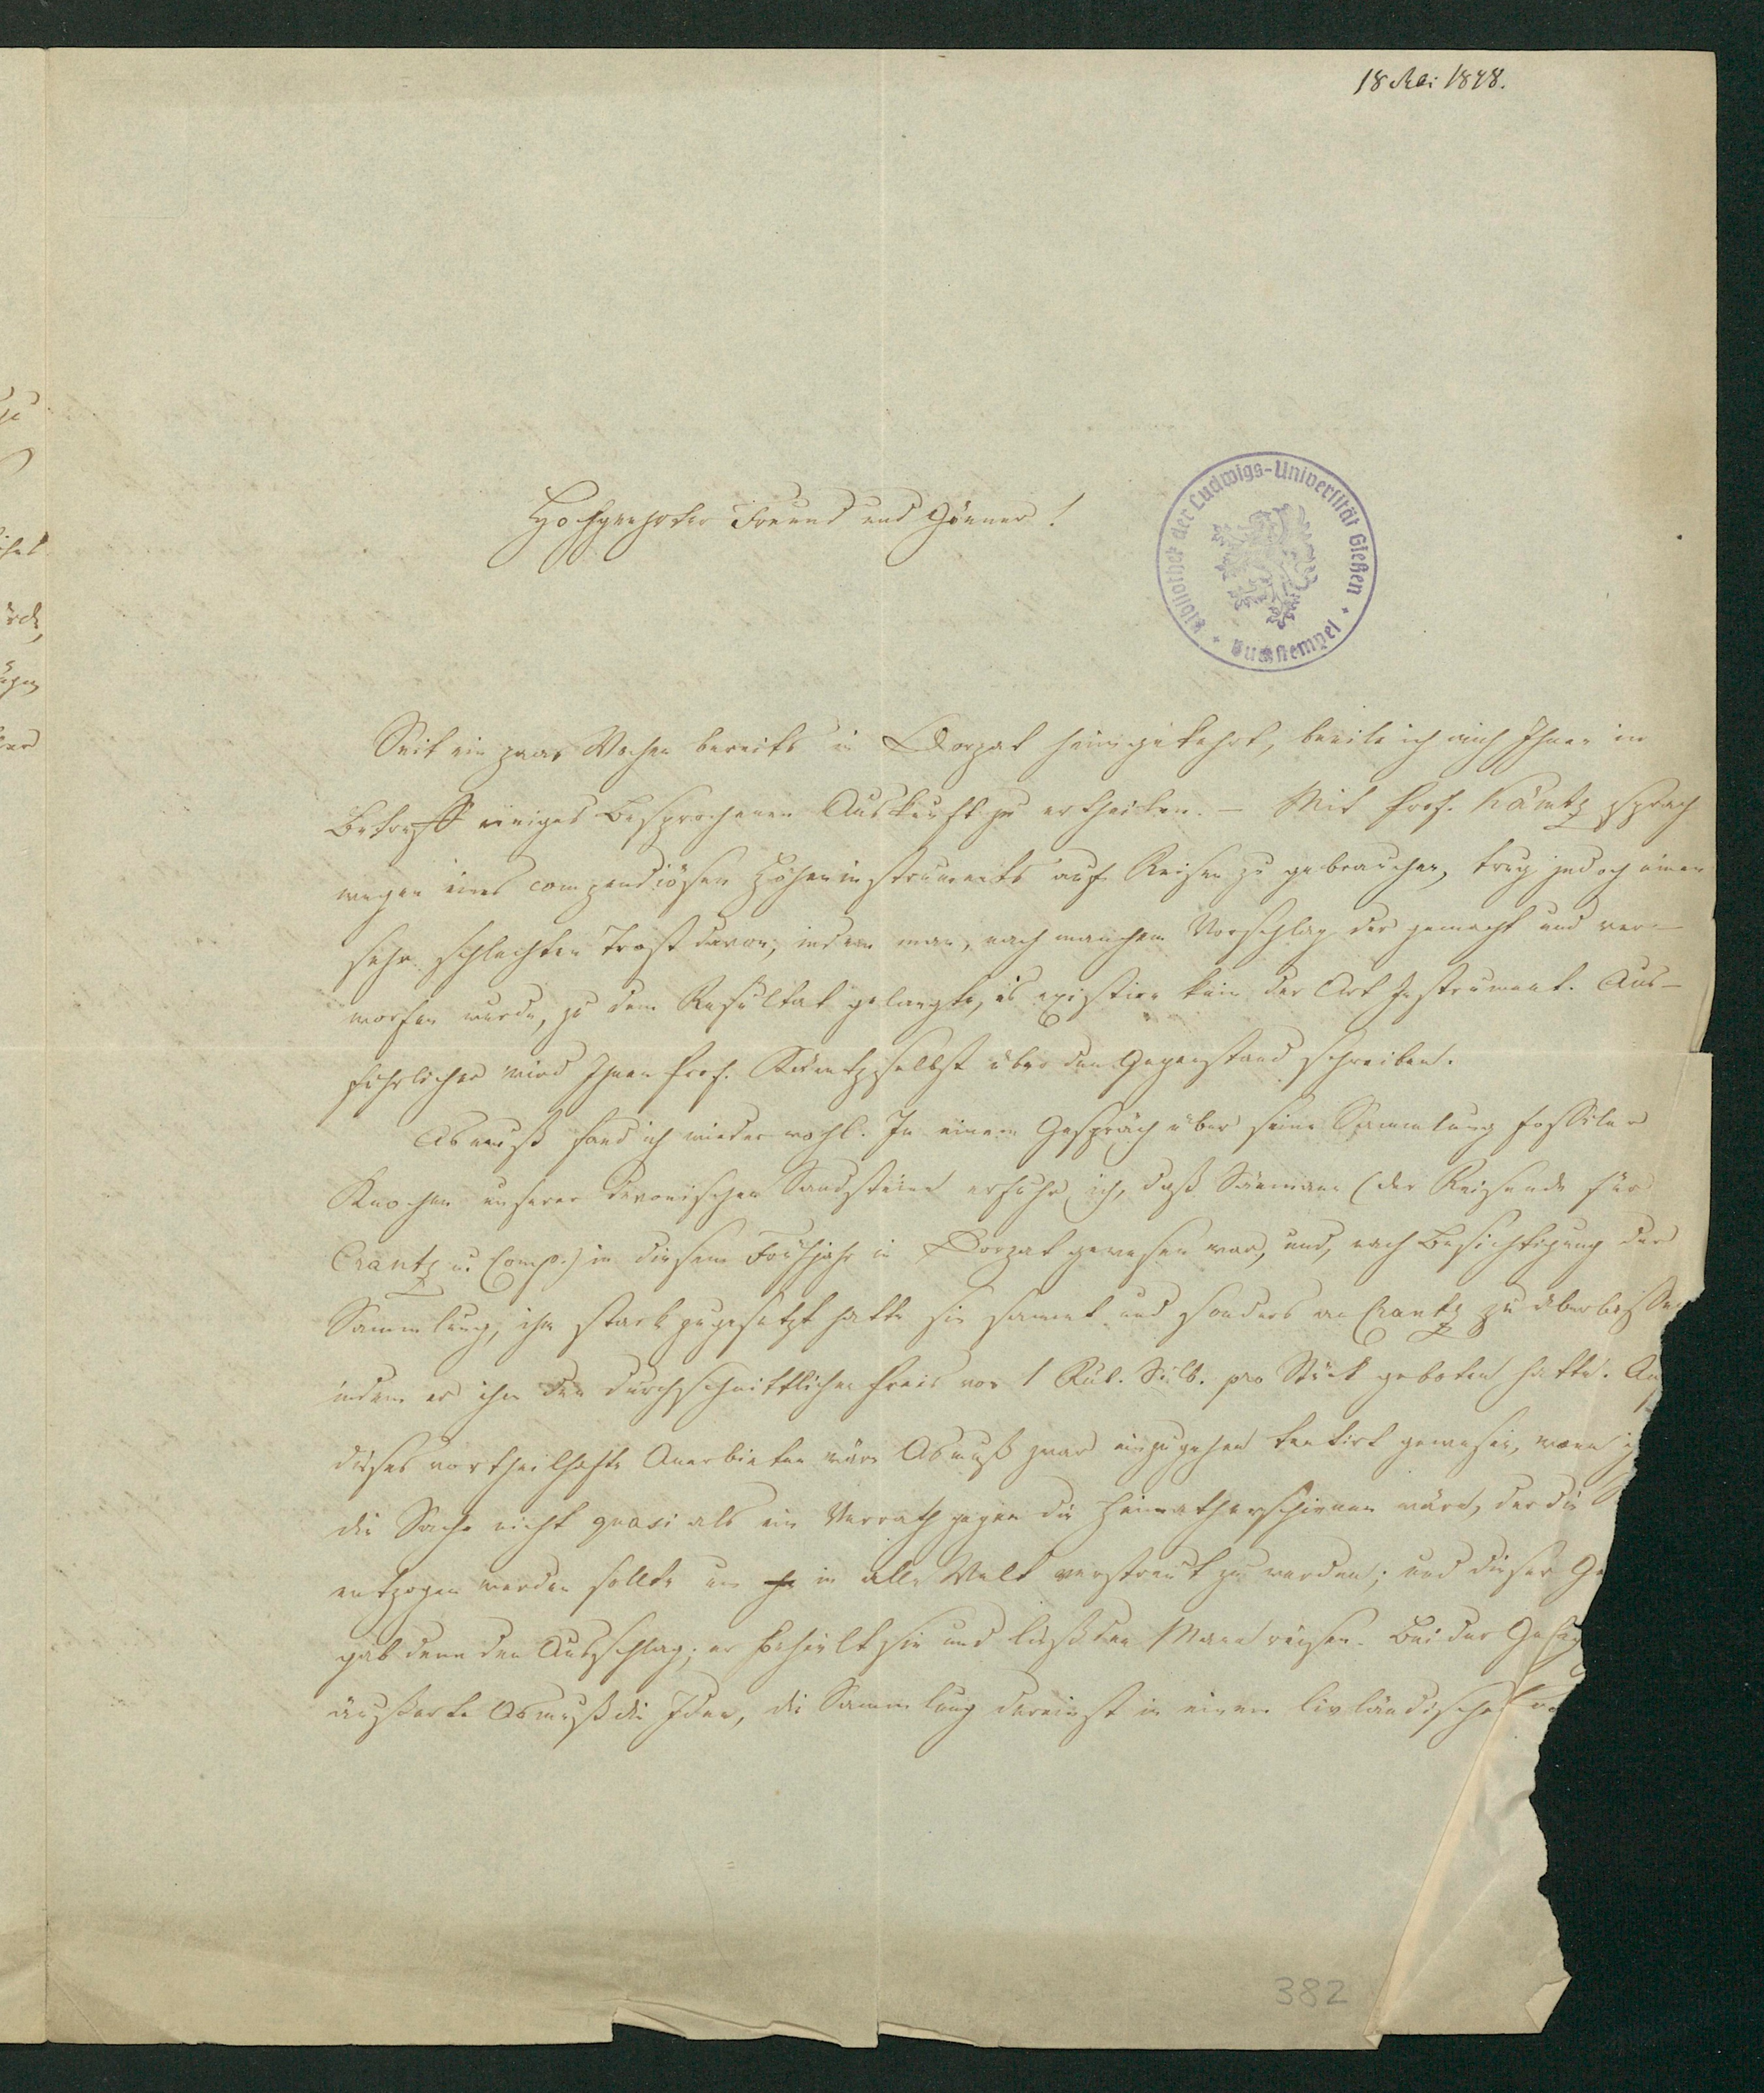 18 Mai 1848.
Hochgeehrter Freund und Gönner!
Bibliothek der Ludwigs-Universität Gießen
Buchstempel
Seit ein paar Wochen bereits in Dorpat heimgekehrt, beeile ich mich Ihnen in
Betreff einiges Besprochenen Auskunft zu ertheilen. – Mit Prof. Kämtz sprach
wegen eines compendiösen Höheninstruments auf Reisen zu gebrauchen, trug jedoch einen
sehr schlechten Trost davon, indem man, nach manchem Vorschlag der gemacht und ver-
worfen wurde, zu dem Resultat gelangte, es existire kein der Art Instrument. Aus-
führlicher wird Ihnen Prof. Kämtz selbst über den Gegenstand schreiben.
Asmuß fand ich wieder wohl. In einem Gespräch über seine Sammlung fossiler
Knochen unseres devonischen Sandsteins erfuhr ich, daß Sämann (der Reisende für
Crantz u. Comp.) in diesem Frühjahr in Dorpat gewesen war, und, nach Besichtigung der
Sammlung, ihm stark zugesetzt hatte sie sammt und sonders an Crantz zu überlassen
indem er ihm den durchschnittlichen Preis von 1 Rub. Silb. pro Stück geboten hatte. Au
dieses vortheilhafte Anerbieten wäre Asmuß zwar einzugehen tentirt gewesen, wenn
die Sache nicht quasi als ein Verrath gegen die Heimath erschienen wäre, der die
entzogen werden sollte um in alle Welt verstreut zu werden; und dieser Ge
gab denn den Ausschlag; er behielt sie und ließ den Mann reisen. Bei der Geleg
äußerte Asmuß die Idee, die Sammlung dereinst in einem livländischen
382